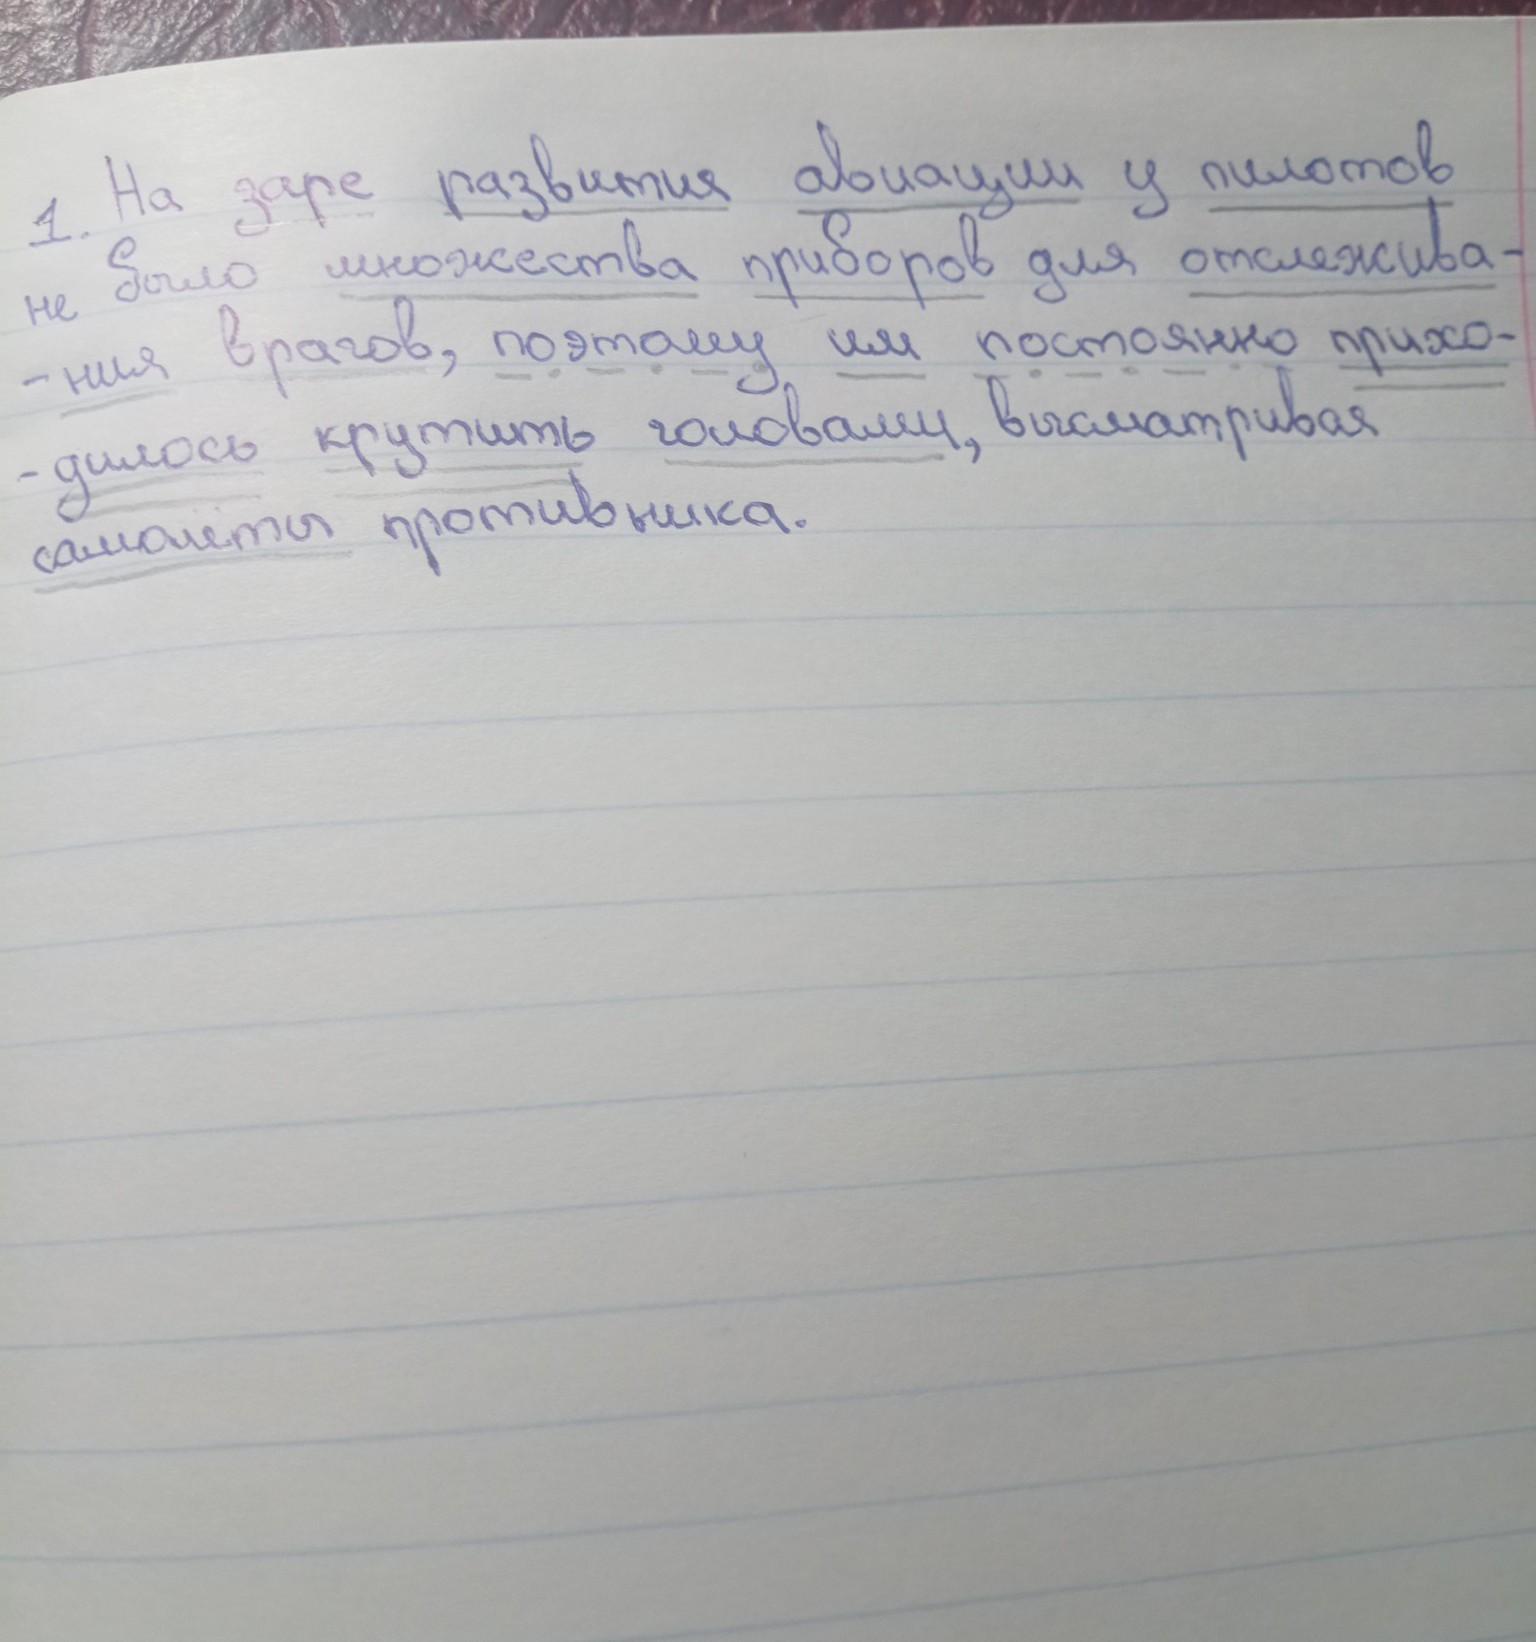 1. На заре развития авиации у пилотов
не было множества приборов для отслежива-
-ния врагов, поэтому им постоянно прихо-
-дилось крутить головами, высматривая
самолёты противника.